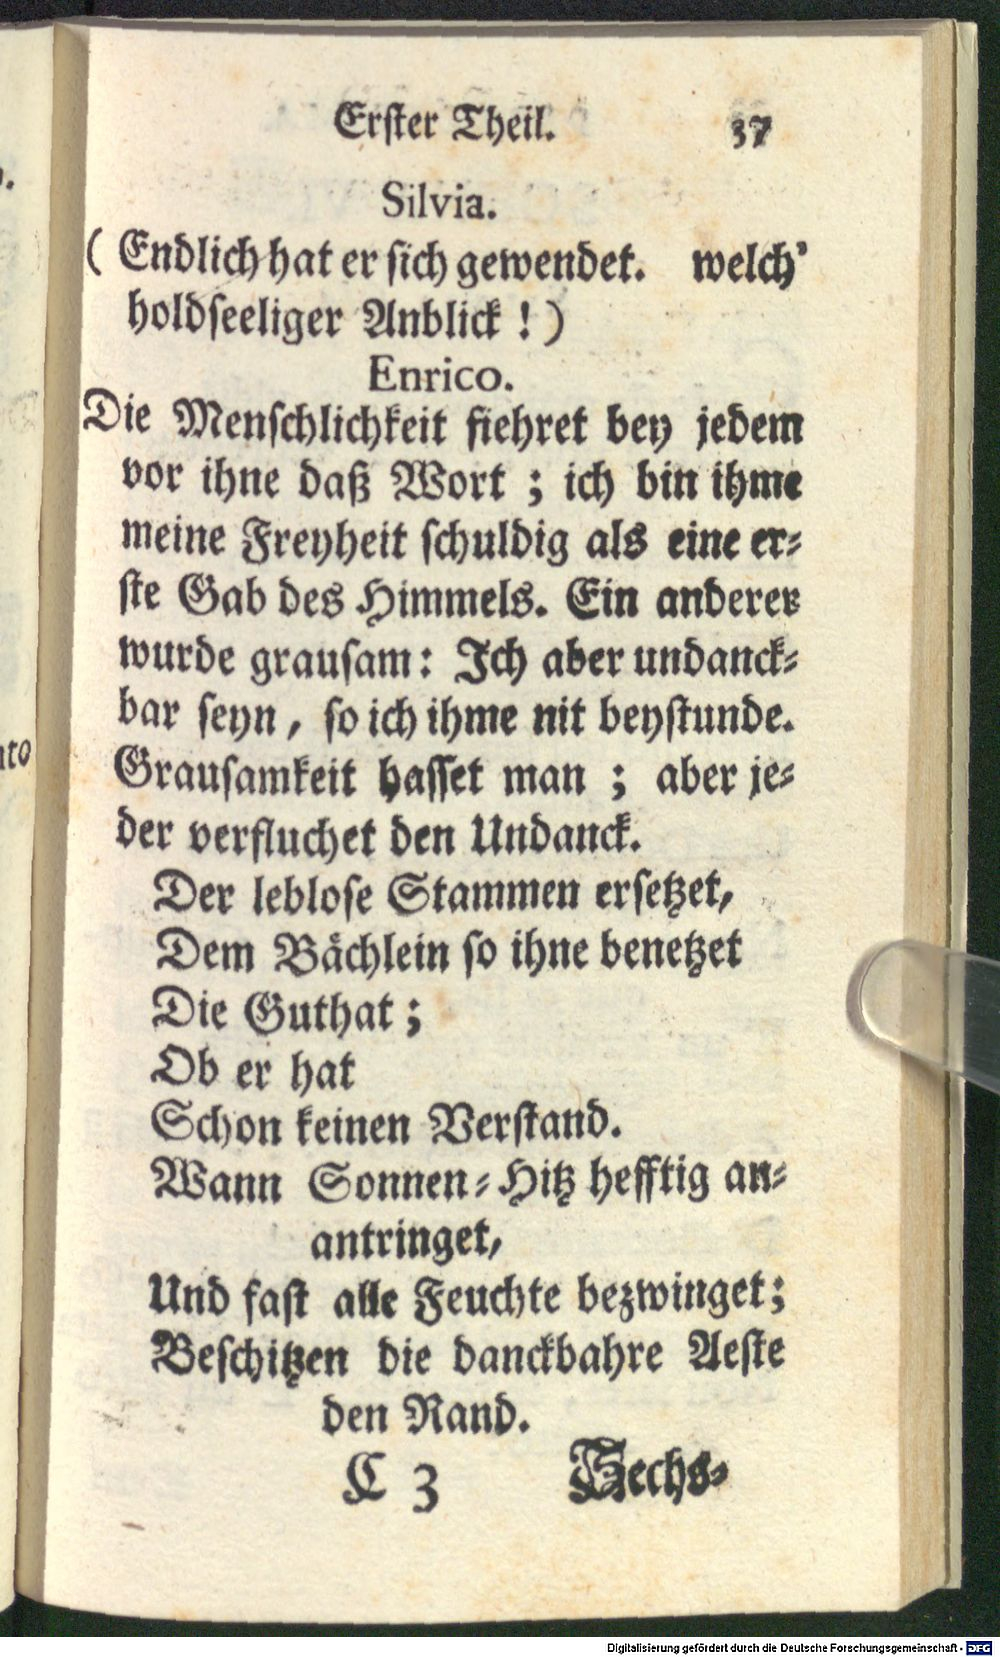 Erster Theil. 37
Silvia.
( Endlich hat er sich gewendet. welch'
holdseeliger Anblick ! )
Enrico.
Die Menschlichkeit fiehret bey jedem
vor ihne daß Wort ; ich bin ihme
meine Freyheit schuldig als eine er-
ste Gab des Himmels. Ein anderer
wurde grausam: Ich aber undanck-
bar seyn, so ich ihme nit beystunde.
Grausamkeit hasset man ; aber je-
der verfluchet den Undanck.
Der leblose Stammen ersetzet,
Dem Bächlein so ihne benetzet
Die Guthat ;
Ob er hat
Schon keinen Verstand.
Wann Sonnen-Hitz hefftig an-
antringet,
Und fast alle Feuchte bezwinget;
Beschitzen die danckbahre Aeste
den Rand.
C 3 Sechs-
Digitalisierung gefördert durch die Deutsche Forschungsgemeinschaft - DFG